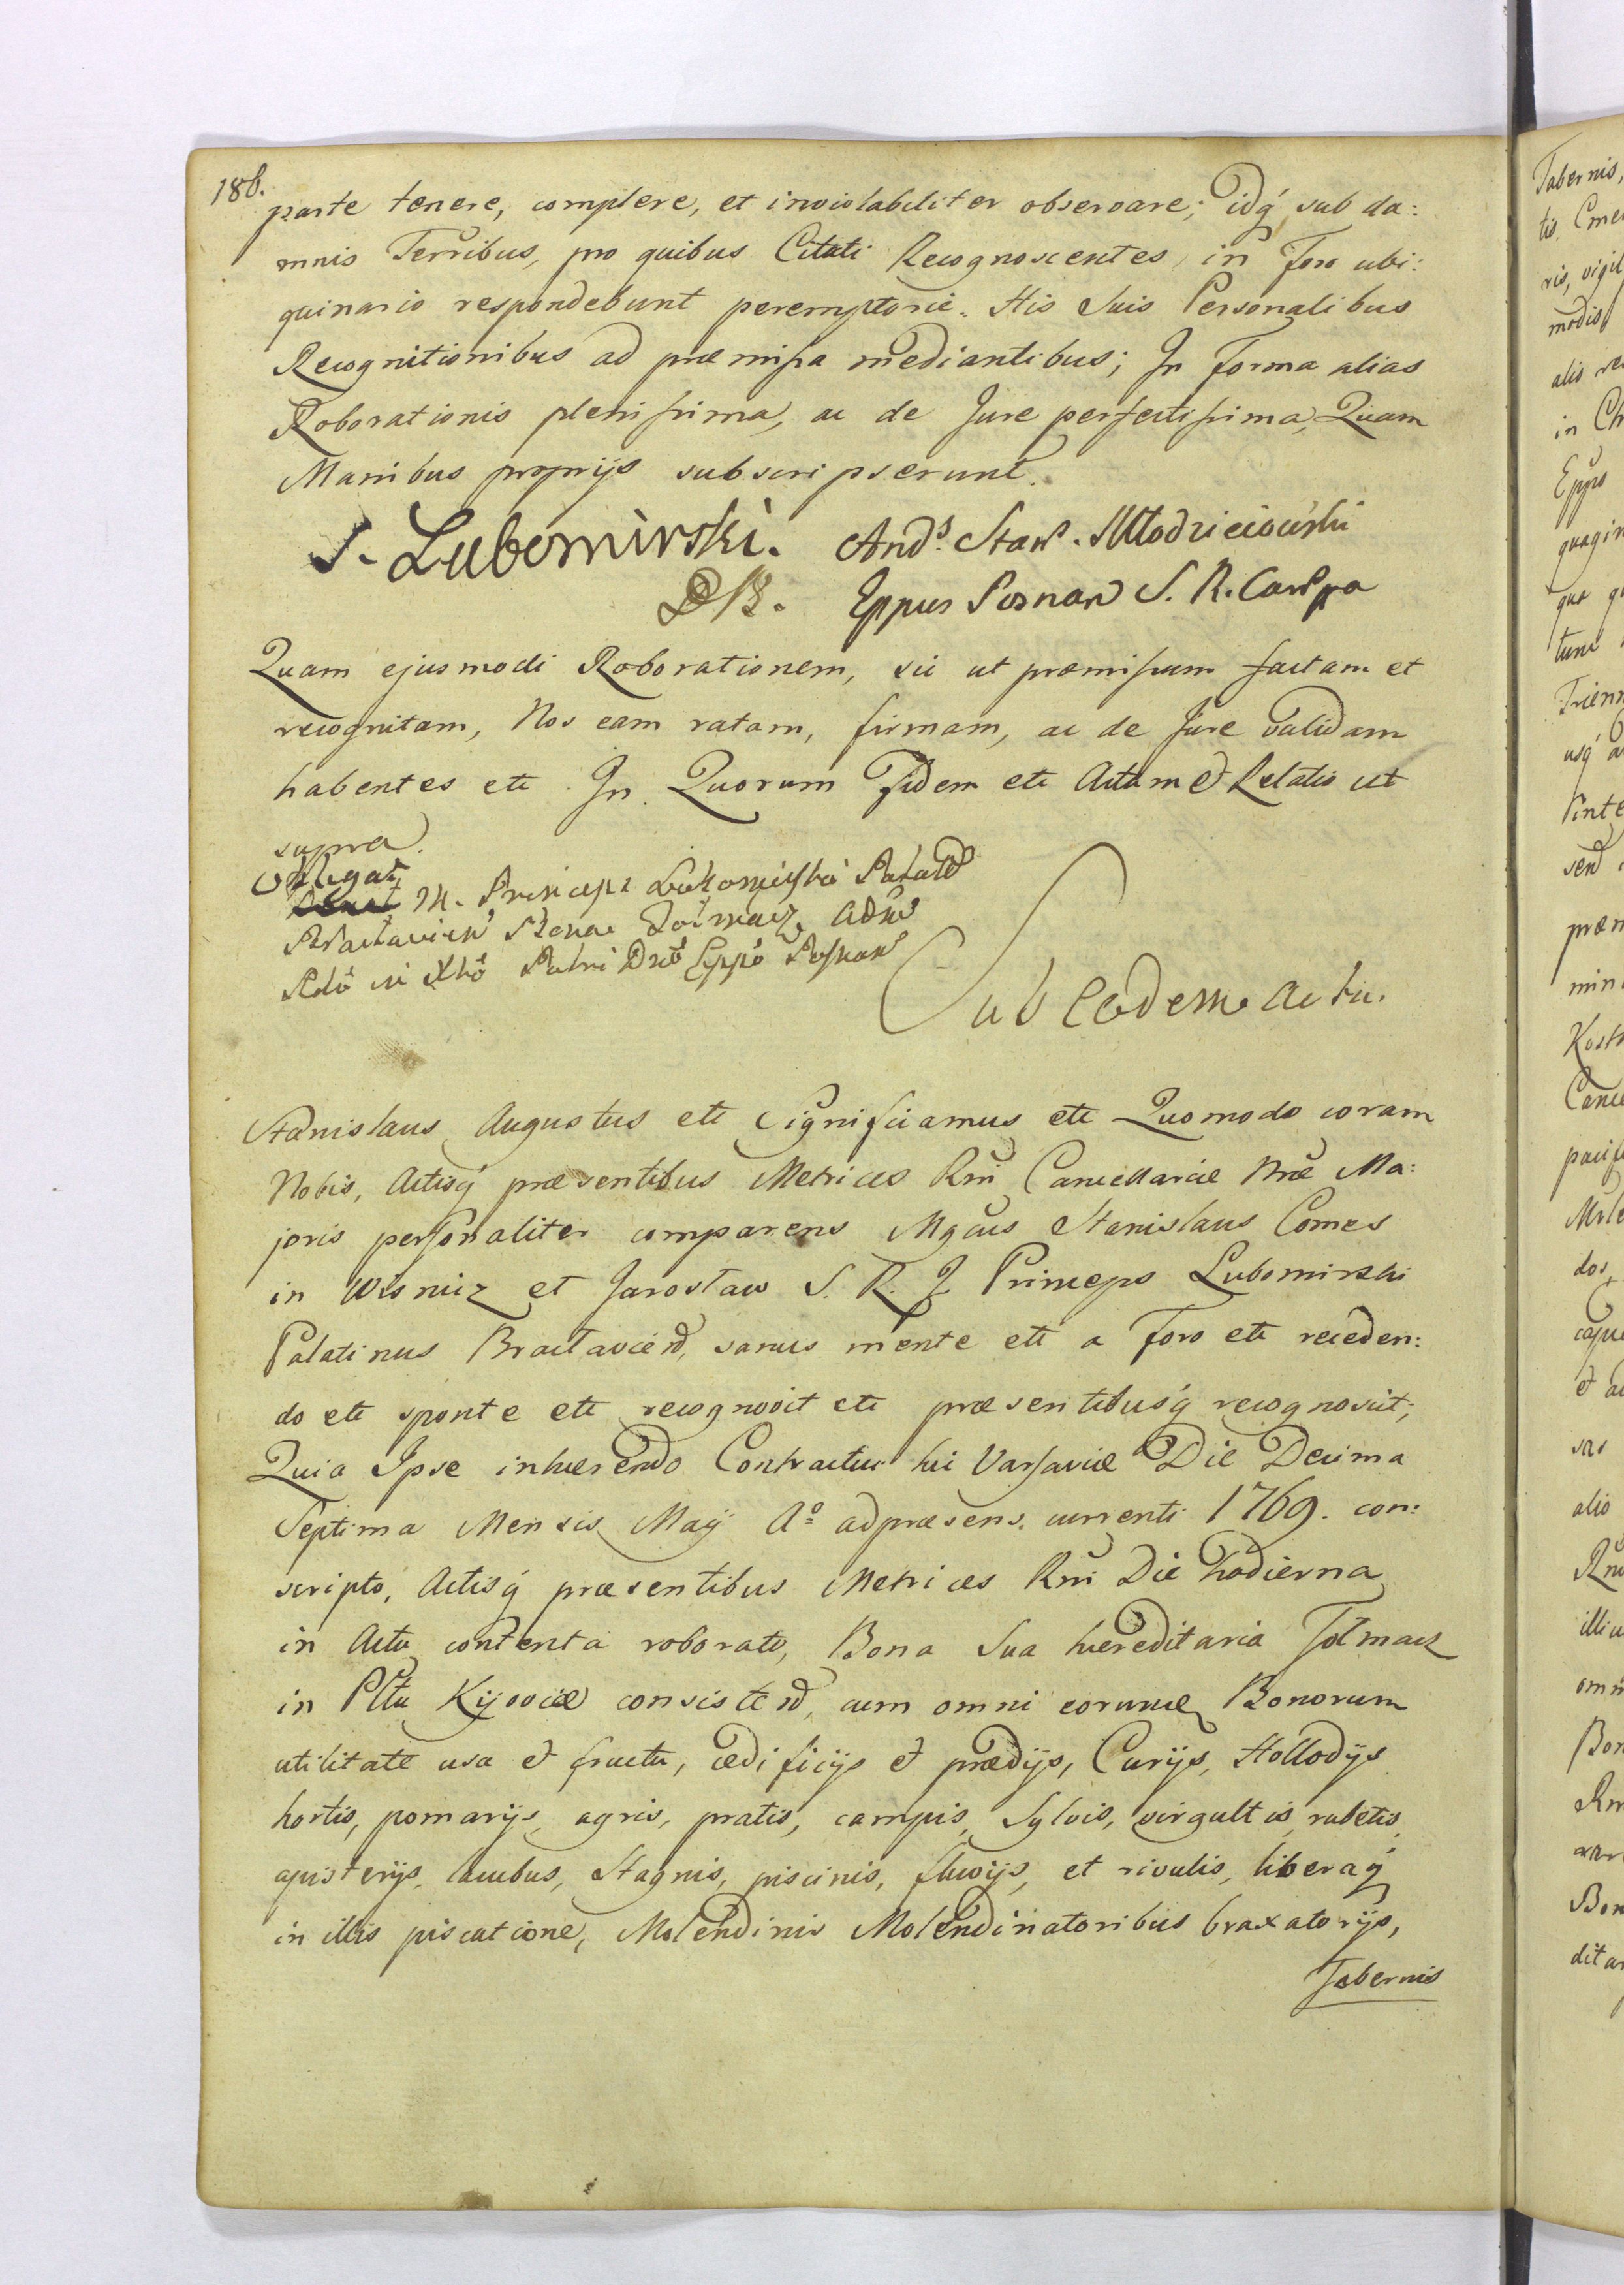 186.
parte tenere, complere, et inviolabiliter observare; idq́ sub da:
mnis Terribus, pro quibus Citati Recognoscentes in Foro ubi:
quinario respondebunt peremptorie. His Suis Personalibus
Recognitionibus ad præmissa mediantibus; In Forma alias
Roborationis plenissima, ac de Jure perfectissima, Quam
Manibus proprijs subscripserunt.
S. Lubomirski. Andr. Stan. Młodzieiowski
Eppus Posnan S. R. Canp
Quam ejusmodi Roborationem, sic ut præmissum factam et
recognitam, Nos eam ratam, firmam, ac de Jure validam
habentes etc In Quorum Fidem etc Actum et Relatio ut
supra.
Obligat
M. Princeps Lubomirski Palat
Braclavien Bona Tołmacz Adm
Rdo in Xto Patri Dno Eppo Posnan
Sub Eodem Actu.
Stanislaus Augustus etc Significamus etc Quomodo coram
Nobis, Actisq́ præsentibus Metrices Rni Cancellariæ Nræ Ma:
joris personaliter comparens Mgcus Stanislaus Comes
in Wisnicz et Jarosław S. R. J. Princeps Lubomirski
Palatinus Braclavien, sanus mente etc a Foro etc receden:
do etc sponte etc recognovit etc præsentibusq́ recognoscit;
Quia Ipse inhærendo Contractui hic Varsaviæ Die Decima
Septima Mensis Maij Aº ad præsens. currenti 1769. con:
scripto, Actisq́ præsentibus Metrices Rni Die hodierna
in Actu contenta roborato, Bona Sua hæreditaria Tołmacz
in Pltu Kijoviæ consisten, cum omni eorum Bonorum
utilitate usu et fructu, ædificijs et prædijs, Curijs, Hollodijs
hortis, pomarijs, agris, pratis, campis, Sylvis, virgultis, rubetis,
apisterijs, lacubus, Stagnis, piscinis, fluvijs, et rivulis, liberaq́
in illis piscatione, Molendinis Molendinatoribus braxatorijs,
Tabernis